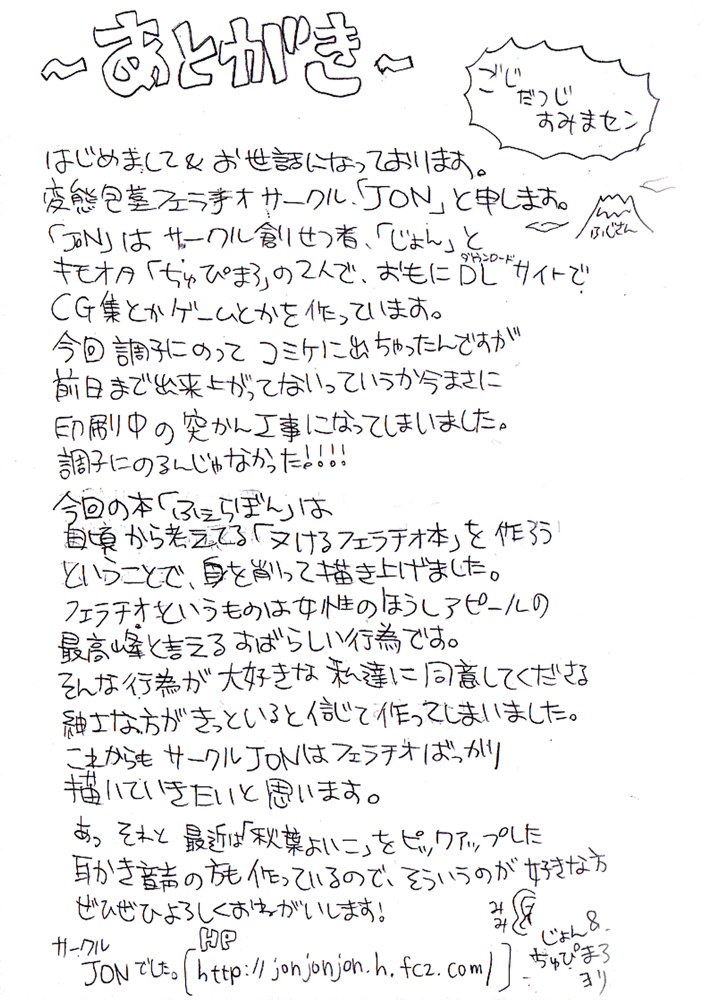 ～あとがき～
ごじ
だつじ
すみまセン
はじめまして& お世話になっております。
変態包茎フェラチオサークル、「JON」と申します。
ふじさん
「JON」は サークル創りせつ者、「じょん」と
キモオタ「ぢゅぴまろ」の2人で、おもにDLサイトで
ダウンロード
CG集とかゲームとかを作っています。
今回 調子にのって コミケに出ちゃったんですが
前日まで出来上がってないっていうか今まさに
印刷中の突かん工事になってしまいました。
調子にのるんじゃなかった!!!!
今回の本「ふぇらぼん」は
日頃から考えてる「ヌけるフェラチオ本」を作ろう
ということで、身を削って描き上げました。
フェラチオというものは女性のほうしアピールの
最高峰と言えるすばらしい行為です。
そんな行為が大好きな私達に同意してくださる
紳士な方がきっといると信じて作ってしまいました。
これからもサークルJONはフェラチオばっかり
描いていきたいと思います。
あっ それと 最近は「秋葉よいこ」をピックアップした
耳かき音声の方も作っているので、そういうのが好きな方
ぜひぜひよろしくおねがいします!
みみ
サークル
JONでした。
HP
[http://jonjonjon.h.fc2.com/]
じょん&
ぢゅぴまろ
ヨリ